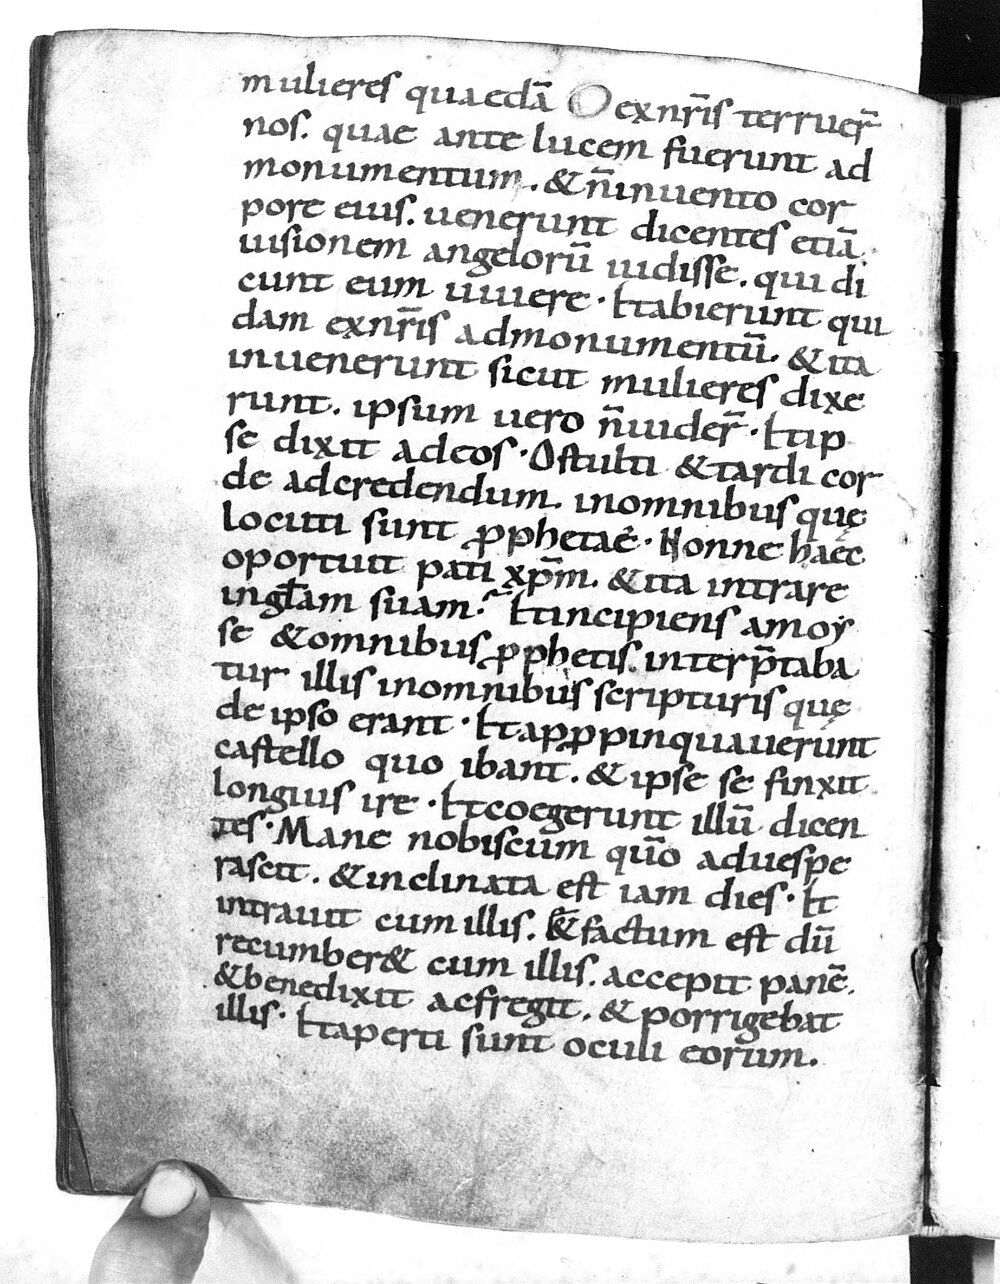 mulieres quaedā exnr̄is terruer̄
nos. quae ante lucem fuerunt ad
monumentum. & n̄ inuento cor
pore eius. uenerunt dicentes etiā
uisionem angelorū uidisse. qui di
cunt eum uiuere · Et abierunt qui
dam exnr̄is admonumentū. & ita
inuenerunt sicut mulieres dixe
runt. ipsum uero n̄ uider̄ · Et ip
se dixit adeos · O stulti & tardi cor
de adcredendum. inomnibus quę
locuti sunt ꝓphetae · Nonne haec
oportuit pati xp̄m. & ita intrare
inglām suam. Et incipiens amoy
se & omnibus ꝓphetis. interp̄taba
tur illis inomnibus scripturis quę
de ipso erant · Et apꝓpinquauerunt
castello quo ibant. & ipse se finxit
longius ire · Et coegerunt illū dicen
tes · Mane nobiscum quō aduespe
rascit. & inclinata est iam dies · Et
intrauit cum illis. & factum est dū
recumber& cum illis. accepit panē.
& benedixit acfregit. & porrigebat
illis · Et aperti sunt oculi eorum.